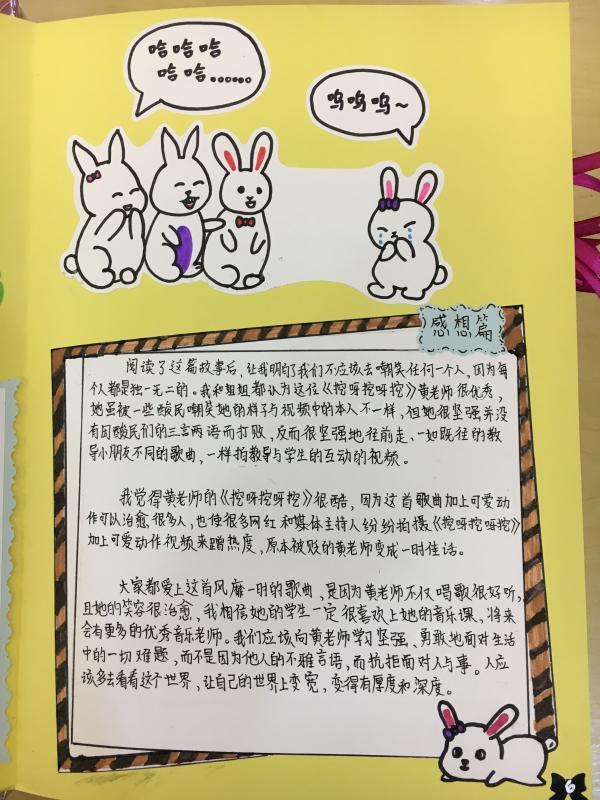 哈哈哈
哈哈……
呜呜呜~
感想篇
阅读了这篇故事后，让我明白了我们不应该去嘲笑任何一个人，因为每
个人都是独一无二的。我和姐姐都认为这位《挖呀挖呀挖》黄老师很优秀，
她虽被一些酸民嘲笑她的样子与视频中的本人不一样，但她很坚强并没
有因酸民们的三言两语而打败，反而很坚强地往前走、一如既往的教
导小朋友不同的歌曲，一样拍教导与学生的互动的视频。
我觉得黄老师的《挖呀挖呀挖》很酷，因为这首歌曲加上可爱动
作可以治愈很多人，也使很多网红和媒体主持人纷纷拍摄《挖呀挖呀挖》
加上可爱动作视频来蹭热度，原本被贬的黄老师变成一时佳话。
大家都爱上这首风靡一时的歌曲，是因为黄老师不仅唱歌很好听，
且她的笑容很治愈，我相信她的学生一定很喜欢上她的音乐课，将来
会有更多的优秀音乐老师。我们应该向黄老师学习坚强、勇敢地面对生活
中的一切难题，而不是因为他人的不雅言语，而抗拒面对人与事。人应
该多去看看这个世界，让自己的世界上变宽，变得有厚度和深度。
6